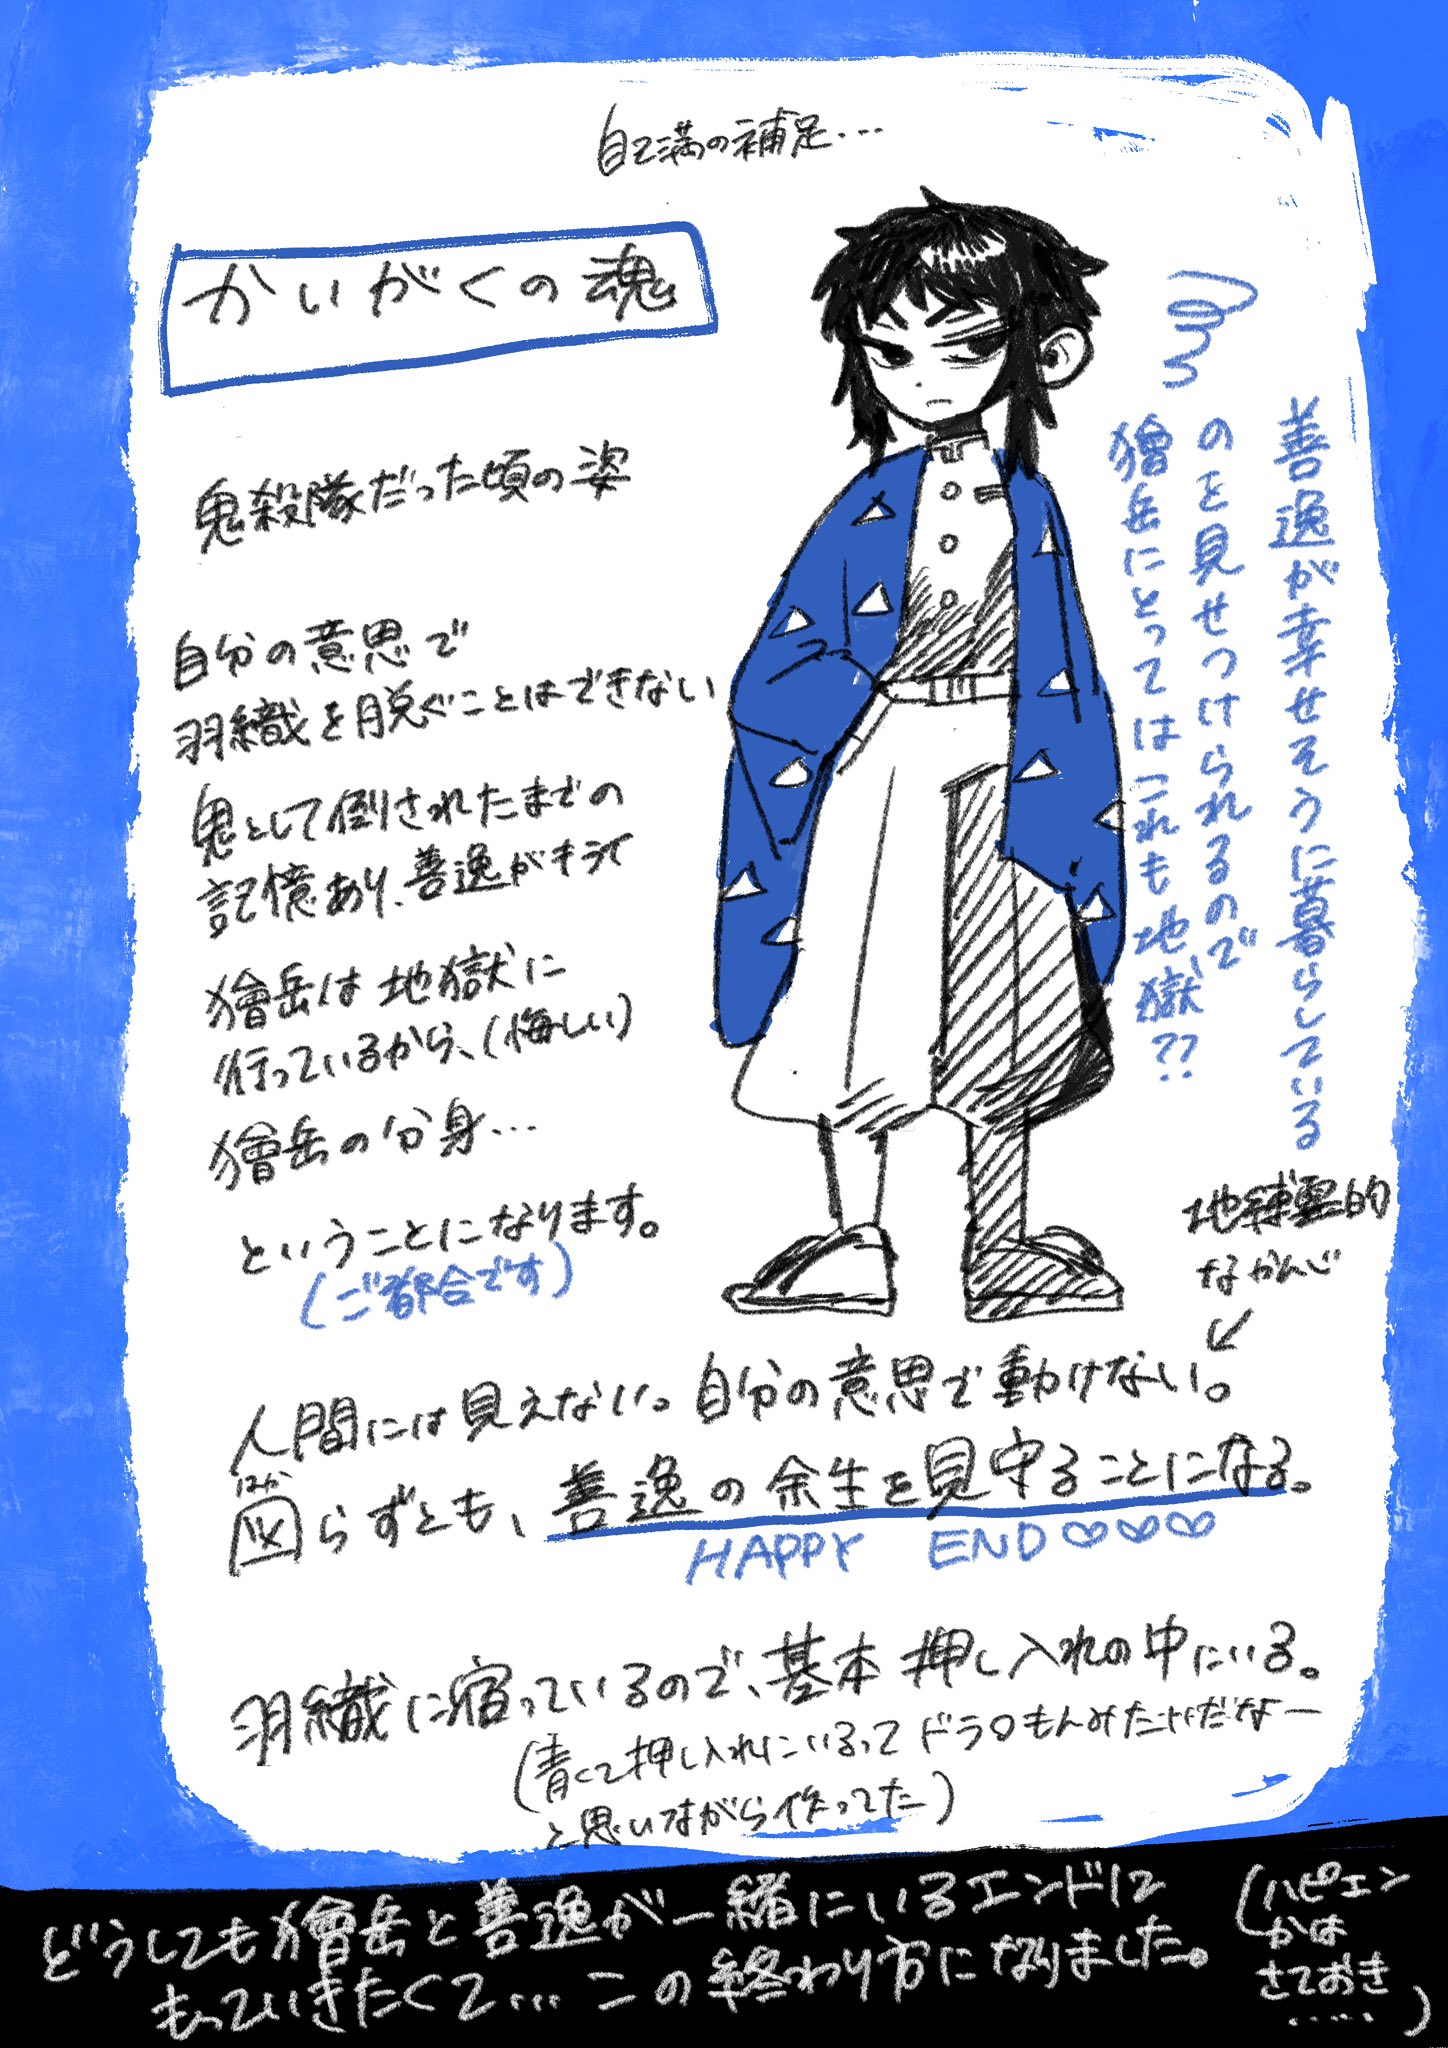 自己満の補足…
かいがくの魂
鬼殺隊だった頃の姿
自分の意思で
羽織を脱ぐことはできない
鬼として倒されたまでの
記憶あり、善逸がキライ
獪岳は地獄に
行っているから、(悔しい)
獪岳の分身…
ということになります。
(ご都合です)
善逸が幸せそうに暮らしている
のを見せつけられるので
獪岳にとってはこれも地獄??
地縛霊的
なかんじ
人間には見えない。自分の意思で動けない。
はか
図らずとも、善逸の余生を見守ることになる。
HAPPY END♡♡♡
羽織に宿っているので、基本押し入れの中にいる。
(青くて押し入れにいるってドラ○もんみたいだなー
と思いながら作ってた)
どうしても獪岳と善逸が一緒にいるエンドに
もっていきたくて…この終わり方になりました。
(ハピエン
かは
さておき
……)